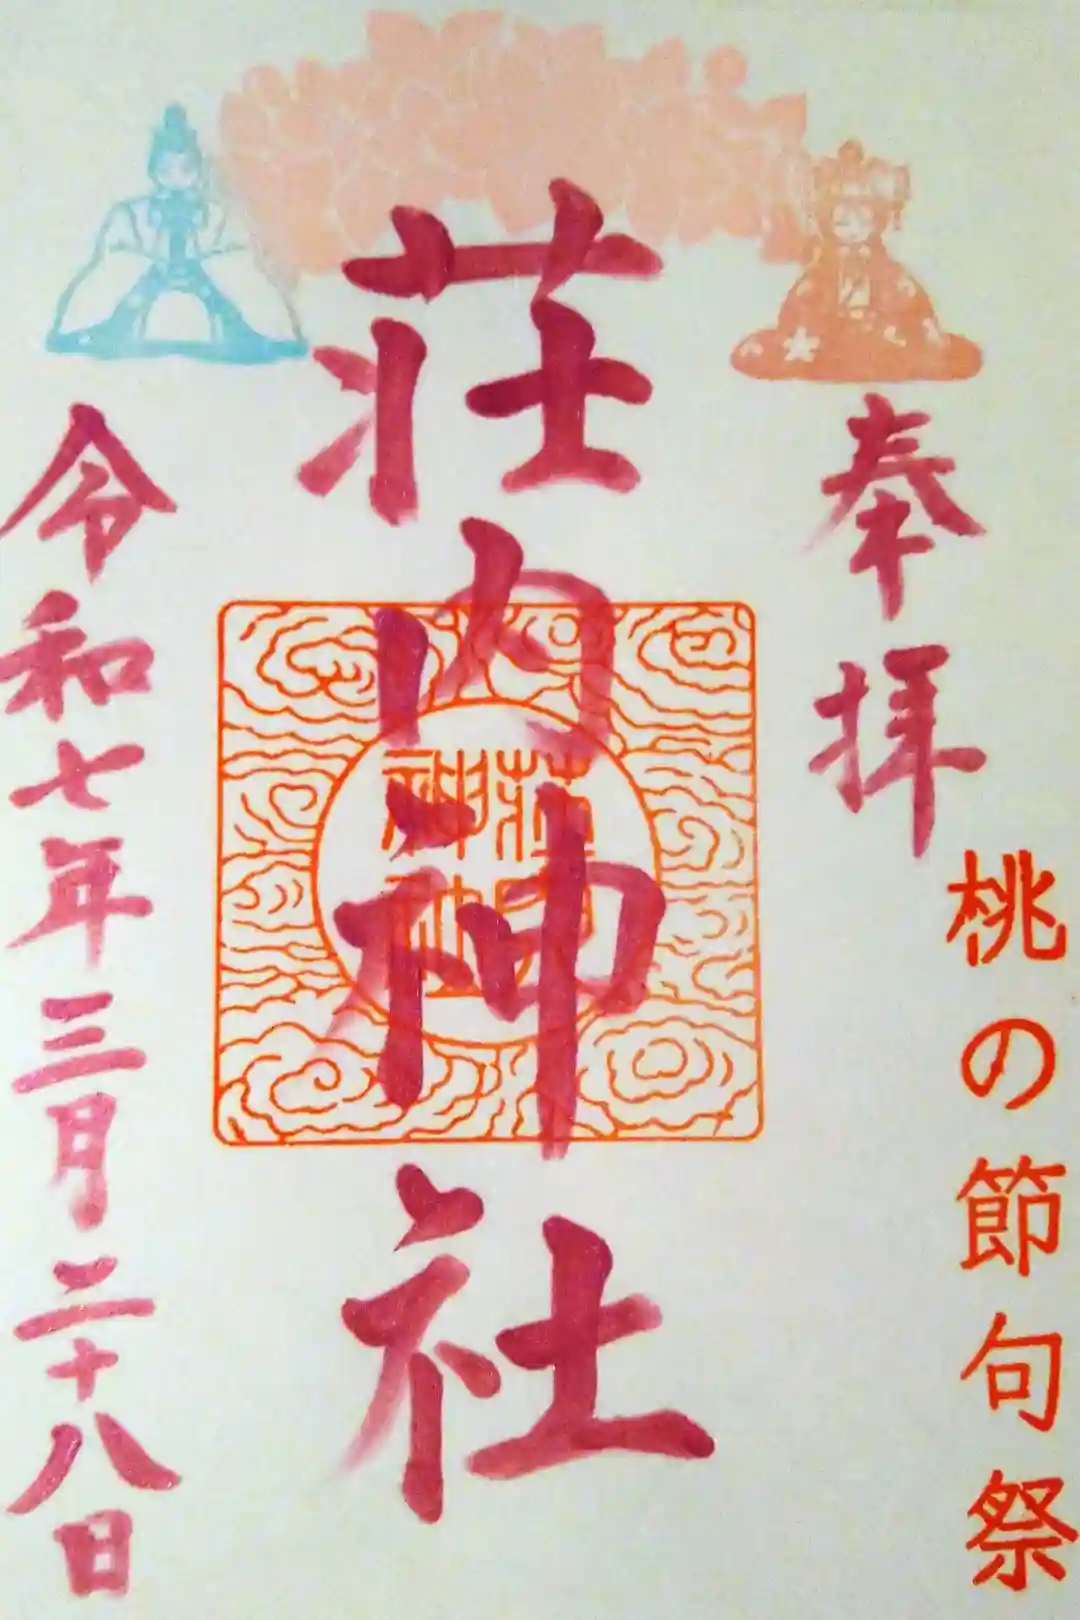 奉拝
桃の節句祭
荘内神社
荘内
神社
令和七年三月二十八日